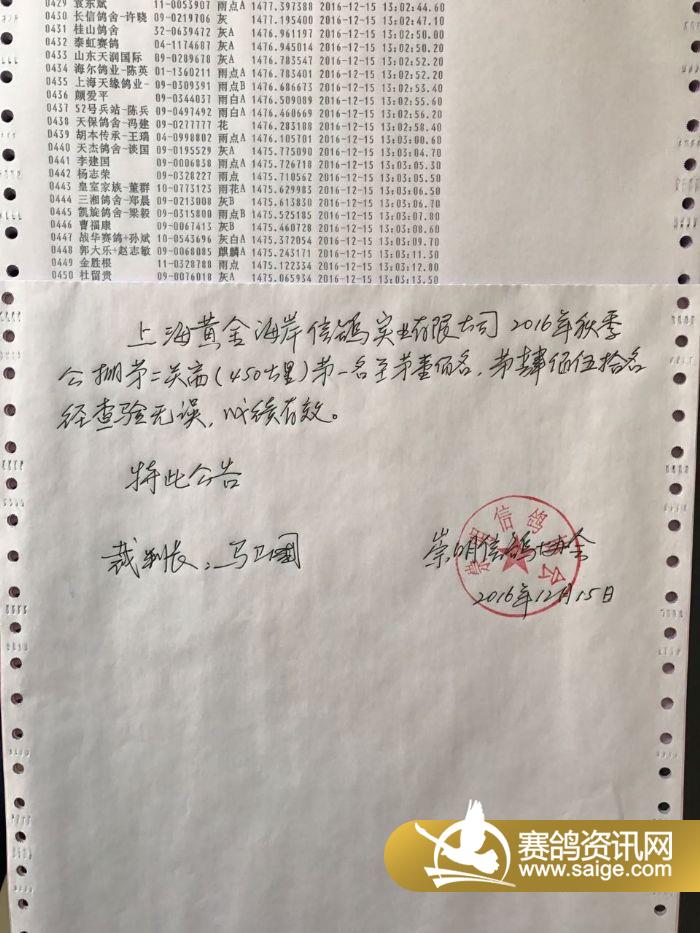 0429 袁东斌 11-0053907 雨点A 1477.397388 2016-12-15 13:02:44.60
0430 长信鸽舍-许晓 09-0219706 灰 1477.195400 2016-12-15 13:02:47.10
0431 桂山鸽舍 32-0639472 灰A 1476.961197 2016-12-15 13:02:50.00
0432 泰虹赛鸽 04-1174687 灰A 1476.945014 2016-12-15 13:02:50.20
0433 山东天润国际 09-0289678 灰A 1476.783547 2016-12-15 13:02:52.20
0434 海尔鸽业-陈英 01-1360211 雨点A 1476.783401 2016-12-15 13:02:52.20
0435 上海天缘鸽业- 09-0309391 雨点B 1476.686673 2016-12-15 13:02:53.40
0436 颜爱平 09-0344037 雨白A 1476.509089 2016-12-15 13:02:55.60
0437 52号兵站-陈兵 09-0497492 雨白A 1476.460669 2016-12-15 13:02:56.20
0438 天保鸽舍-冯建 09-0277777 花 1476.283188 2016-12-15 13:02:58.40
0439 胡本传承-王瑞 04-0998802 雨点A 1476.105701 2016-12-15 13:03:00.60
0440 天杰鸽舍-谈国 09-0195529 灰A 1475.775090 2016-12-15 13:03:04.70
0441 李建国 09-0006838 雨点A 1475.726718 2016-12-15 13:03:05.30
0442 杨志荣 09-0328227 雨点 1475.710562 2016-12-15 13:03:05.50
0443 皇室家族-董群 10-0773123 雨花A 1475.629983 2016-12-15 13:03:06.50
0444 三湘鸽舍-郑晨 09-0213008 灰B 1475.613830 2016-12-15 13:03:06.70
0445 凯旋鸽舍-梁毅 09-0315800 雨点B 1475.525185 2016-12-15 13:03:07.80
0446 曹福康 09-0067413 灰B 1475.460728 2016-12-15 13:03:08.60
0447 战华赛鸽+孙斌 10-0543696 灰白A 1475.372054 2016-12-15 13:03:09.70
0448 郭大乐+赵志敏 09-0068085 麒麟A 1475.243171 2016-12-15 13:03:11.30
0449 金胜根 11-0328788 雨点 1475.122334 2016-12-15 13:03:12.80
0450 杜留贵 09-0076018 灰A 1475.065934 2016-12-15 13:03:13.50
上海黄金海岸信鸽实业有限公司 2016年秋季
公棚第二关赛(450公里)第一名至第壹佰名,第肆佰伍拾名
经查验无误,成绩有效。
特此公告
裁判长:马卫国
崇明信鸽协会
2016年12月15日
赛鸽资讯网
www.saige.com